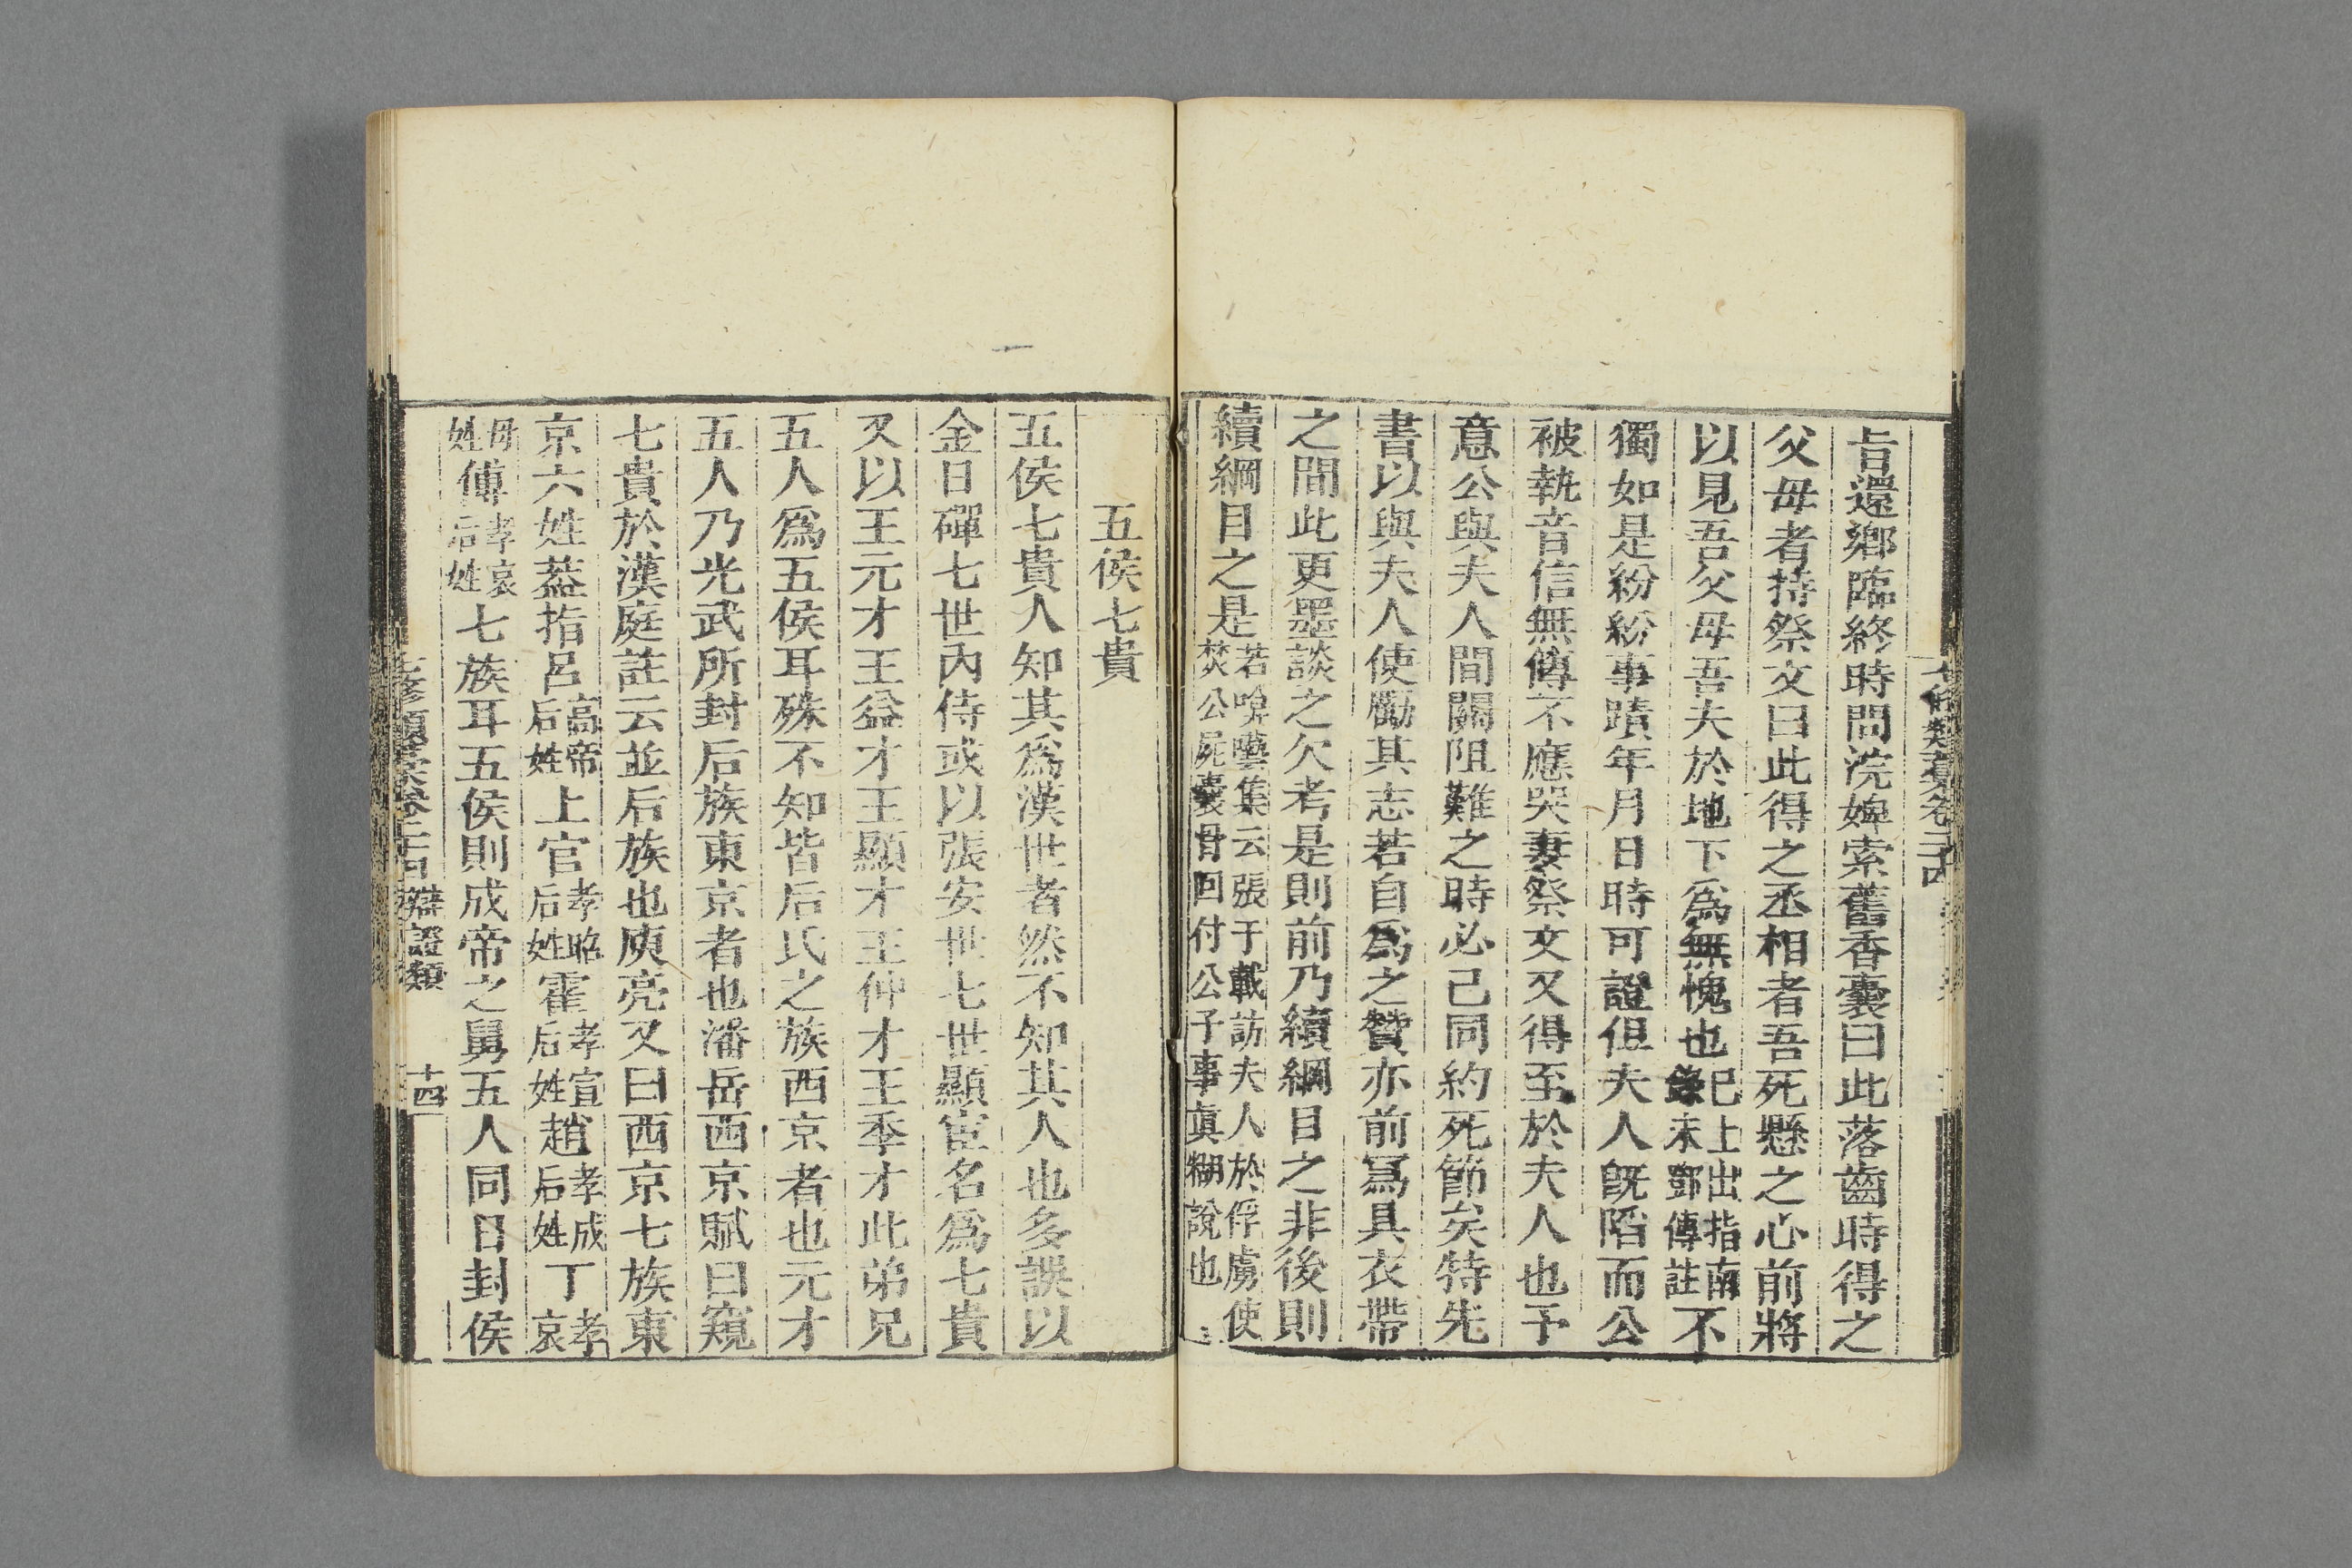 旨還鄉臨終時問浣婢索舊香囊曰此落齒時得之
父母者持祭文曰此得之丞相者吾死懸之心前將
以見吾父母吾夫於地下爲無愧也已上出指南錄未鄧傳註不
獨如是紛紛事蹟年月日時可證但夫人旣陷而公
被執音信無傳不應哭妻祭文又得至於夫人也予
意公與夫人間關阻難之時必己同約死節矣特先
書以與夫人使勵其志若自爲之贊亦前冩具衣帶
之間此更墨談之欠考是則前乃續綱目之非後則
續綱目之是若囈集云張于載訪夫人於俘虜使焚公屍囊骨回付公子事眞糊說也
五侯七貴
五侯七貴人知其爲漢世者然不知其人也多誤以
金日磾七世內侍或以張安世七世顯宦名爲七貴
又以王元才王益才王顯才王仲才王季才此弟兄
五人爲五侯耳殊不知皆后氏之族西京者也元才
五人乃光武所封后族東京者也潘岳西京賦曰窺
七貴於漢庭註云並后族也庾亮又曰西京七族東
京六姓葢指呂高帝后姓上官孝昭后姓霍孝宣后姓趙孝成后姓丁孝哀
母姓傅孝哀后姓七族耳五侯則成帝之舅五人同日封侯
七修類藁卷二十四 辯證類 十四